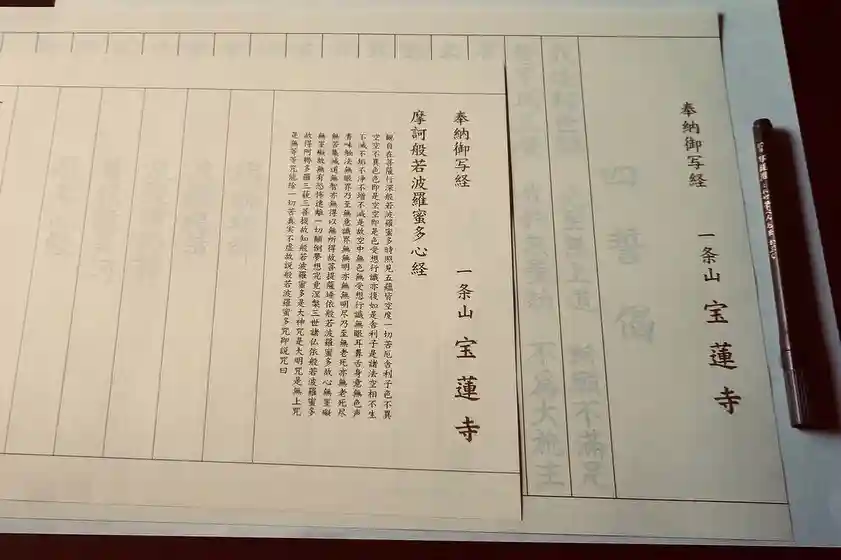 奉納御写経 一条山 宝蓮寺
四誓偈
至無上道 斯願不満足
不為大施主
奉納御写経 一条山 宝蓮寺
摩訶般若波羅蜜多心経
観自在菩薩行深般若波羅蜜多時照見五蘊皆空度一切苦厄舎利子色不異
空空不異色色即是空空即是色受想行識亦復如是舎利子是諸法空相不生
不滅不垢不浄不増不減是故空中無色無受想行識無眼耳鼻舌身意無色声
香味触法無眼界乃至無意識界無無明亦無無明尽乃至無老死亦無老死尽
無苦集滅道無智亦無得以無所得故菩提薩埵依般若波羅蜜多故心無罣礙
無罣礙故無有恐怖遠離一切顛倒夢想究竟涅槃三世諸仏依般若波羅蜜多
故得阿耨多羅三藐三菩提故知般若波羅蜜多是大神咒是大明咒是無上咒
是無等等咒能除一切苦真実不虚故説般若波羅蜜多咒即説咒曰